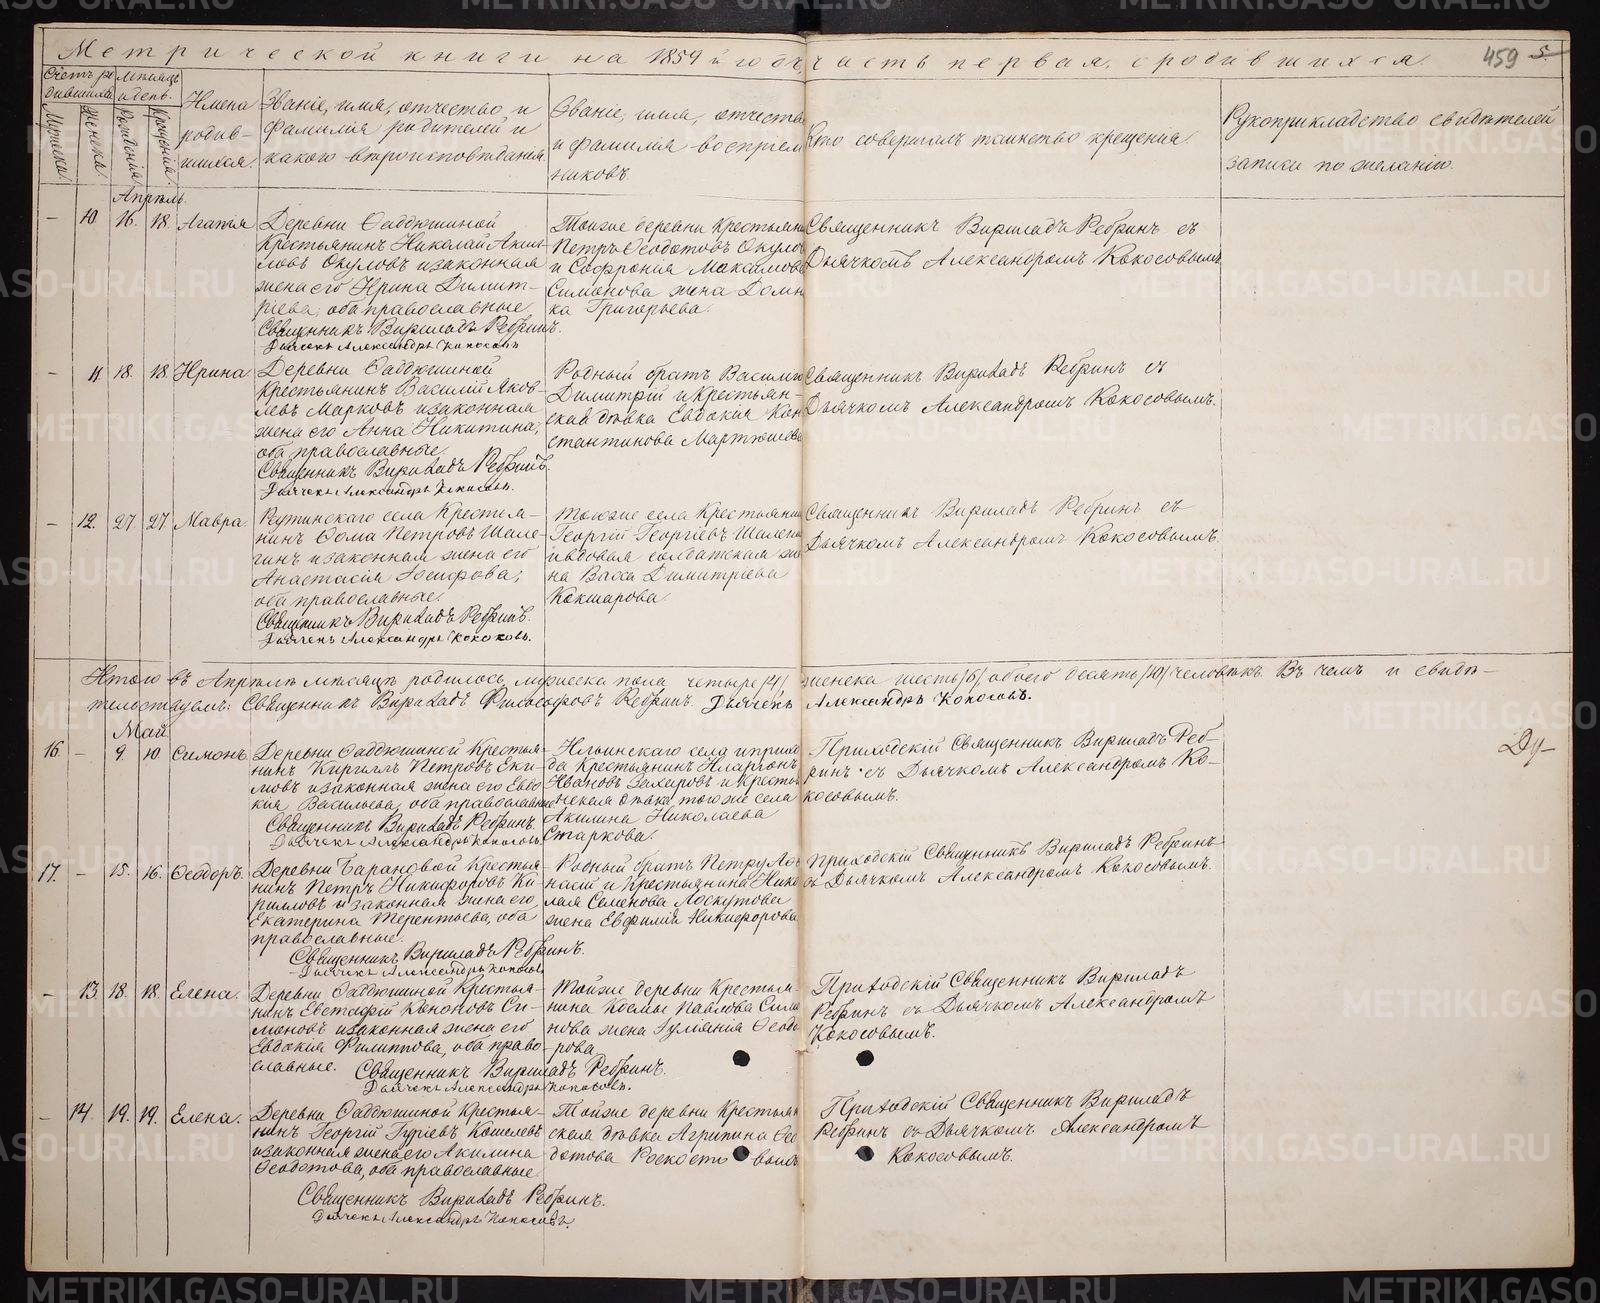 Метрической книги на 1859й годъ часть первая, о родившихся.
459 5.
Счетъ родившихся
Мужеска.
Женска.
Мѣсяцъ и день.
Рожденія.
Крещенія.
Имена родившихся.
Званіе, имя, отчество и
фамилія родителей и
какого вѣроисповѣданія.
Званіе, имя, отчество
и фамилія воспріем
никовъ.
Кто совершалъ таинство крещенія.
Рукоприкладство свидѣтелей
записи по желанію.
Апрѣль.
– 10. 16. 18. Агапія
Деревни Фаддюшиной
Крестьянинъ Николай
Окуловъ и законная
жена его Ирина Димит-
ріева, оба православные
Священникъ Вириладъ Ребринъ.
Дьячекъ Александръ Кокосовъ
Тойже деревни Крестьянинъ
Петръ Ѳеодотовъ Окулов
и Софронія Максимова
Симонова жена Домни
ка Григорьева.
Священникъ Вириладъ Ребринъ съ
Дьячкомъ Александромъ Кокосовымъ
– 11. 18. 18. Ирина
Деревни Фаддюшиной
Крестьянинъ Василій Яков-
левъ Марковъ и законная
жена его Анна Никитина,
оба православные.
Священникъ Вириладъ Ребринъ
Дьячекъ Александръ Кокосовъ.
Родный братъ Василію
Димитрій и Крестьян-
ская дѣвка Евдокія Кон
стантинова
Священникъ Вириладъ Ребринъ съ
Дьячкомъ Александромъ Кокосовымъ.
– 12. 27. 27. Мавра.
села Крестья-
нинъ Ѳома Петровъ Шале-
гинъ и законная жена его
Анастасія Іосифова;
оба православные.
Священникъ Вириладъ Ребринъ.
Дьячекъ Александръ Кокосовъ.
Тогоже села Крестьянинъ
Георгій Георгіевъ
и вдовая солдатская же
на Васса Димитріева
Кокшарова.
Священникъ Вириладъ Ребринъ съ
Дьячкомъ Александромъ Кокосовымъ.
Итого въ Апрѣлѣ мѣсяцѣ родилось, мужеска пола четыре /4/ женска шесть /6/ обоего десять /10/ человѣкъ. Въ чемъ и свидѣ-
тельствуемъ: Священникъ Вириладъ Философовъ Ребринъ. Дьячекъ Александръ Кокосовъ.
Май
16. – 9. 10. Симонъ.
Деревни Фаддюшиной Крестья-
нинъ Кириллъ Петровъ Еки-
мовъ и законная жена его Евдо
кія Васильева, оба православные
Священникъ Вириладъ Ребринъ.
Дьячекъ Александръ Кокосовъ.
Ильинскаго села и прихо
да Крестьянинъ Иларіонъ
Ивановъ Захаровъ и Кресть
янская дѣвка тогоже села
Акилина Николаева
Старкова.
Приходскій Священникъ Вириладъ Реб-
ринъ съ Дьячкомъ Александромъ Ко-
косовымъ.
Ду-
17. – 15. 16. Ѳеодоръ.
Деревни Барановой Крестья-
нинъ Петръ Никифоровъ Ки-
рилловъ и законная жена его
Екатерина Терентьева, оба
православные.
Священникъ Вириладъ Ребринъ.
Дьячекъ Александръ Кокосовъ
Родный братъ Петру Аѳа
насій и Крестьянина Нико
лая Семенова Лоскутова
жена Евфимія Никифорова
Приходскій Священникъ Вириладъ Ребринъ
съ Дьячкомъ Александромъ Кокосовымъ.
– 13. 18. 18. Елена.
Деревни Фаддюшиной Крестья-
нинъ Евстафій Кононовъ Си-
моновъ и законная жена его
Евдокія Филиппова, оба право-
славные.
Священникъ Вириладъ Ребринъ.
Дьячекъ Александръ Кокосовъ.
Тойже деревни Крестья
нина Космы Павлова Симо
нова жена Іуліанія Ѳеодо
рова
Приходскій Священникъ Вириладъ
Ребринъ съ Дьячкомъ Александромъ
Кокосовымъ.
– 14. 19. 19. Елена.
Деревни Фаддюшиной Крестья-
нинъ Георгій Гуріевъ Кошелевъ
и законная жена его Акилина
Ѳеодотова, оба православные
Священникъ Вириладъ Ребринъ.
Дьячекъ Александръ Кокосовъ.
Тойже деревни Крестьян
ская дѣвка Агрипина Ѳео
дотова
Приходскій Священникъ Вириладъ
Ребринъ съ Дьячкомъ Александромъ
Кокосовымъ.
METRIKI.GASO-URAL.RU